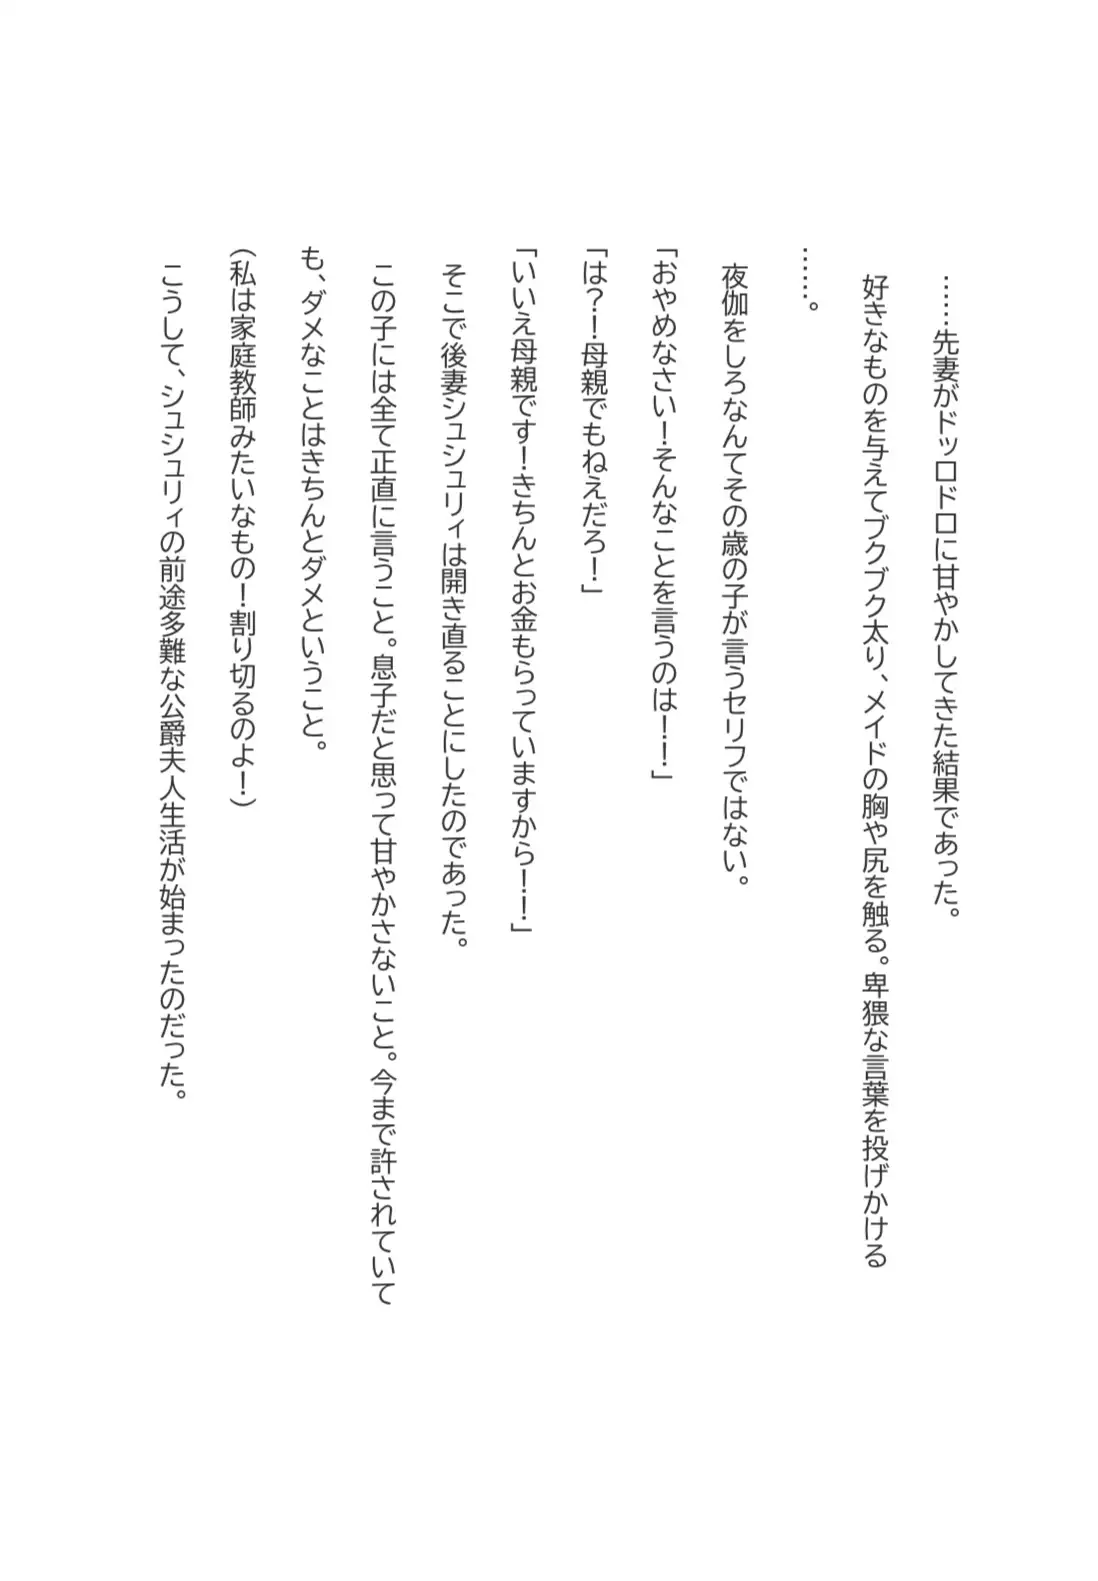 ……先妻がドッロドロに甘やかしてきた結果であった。
好きなものを与えてブクブク太り、メイドの胸や尻を触る。卑猥な言葉を投げかける
……。
夜伽をしろなんてその歳の子が言うセリフではない。
「おやめなさい！そんなことを言うのは！！」
「は？！母親でもねえだろ！」
「いいえ母親です！きちんとお金もらっていますから！！」
そこで後妻シュシュリィは開き直ることにしたのであった。
この子には全て正直に言うこと。息子だと思って甘やかさないこと。今まで許されていて
も、ダメなことはきちんとダメということ。
（私は家庭教師みたいなもの！割り切るのよ！）
こうして、シュシュリィの前途多難な公爵夫人生活が始まったのだった。